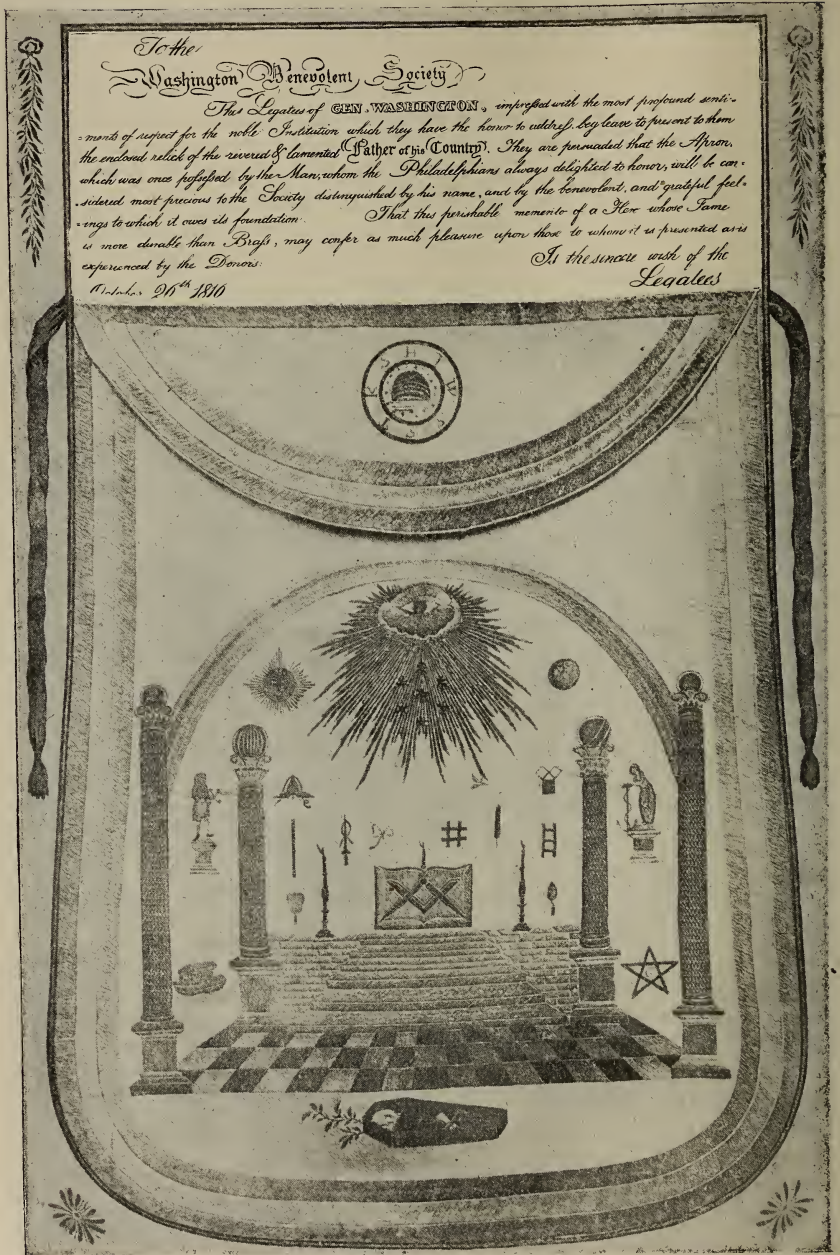 To the
Washington Benevolent Society
The Legatees of GEN. WASHINGTON, impressed with the most profound senti-
-ments of respect for the noble Institution which they have the honor to address, beg leave to present to them
the enclosed relick of the revered & lamented Father of his Country. They are persuaded that the Apron,
which was once possessed by the Man, whom the Philadelphians always delighted to honor, will be con-
-sidered most precious to the Society distinguished by his name, and by the benevolent, and grateful feel-
-ings to which it owes its foundation. That this perishable memento of a Hero whose Fame
is more durable than Brass, may confer as much pleasure upon those to whom it is presented as is
experienced by the Donors. Is the sincere wish of the
26th 1816 Legatees
H T W S S T K S